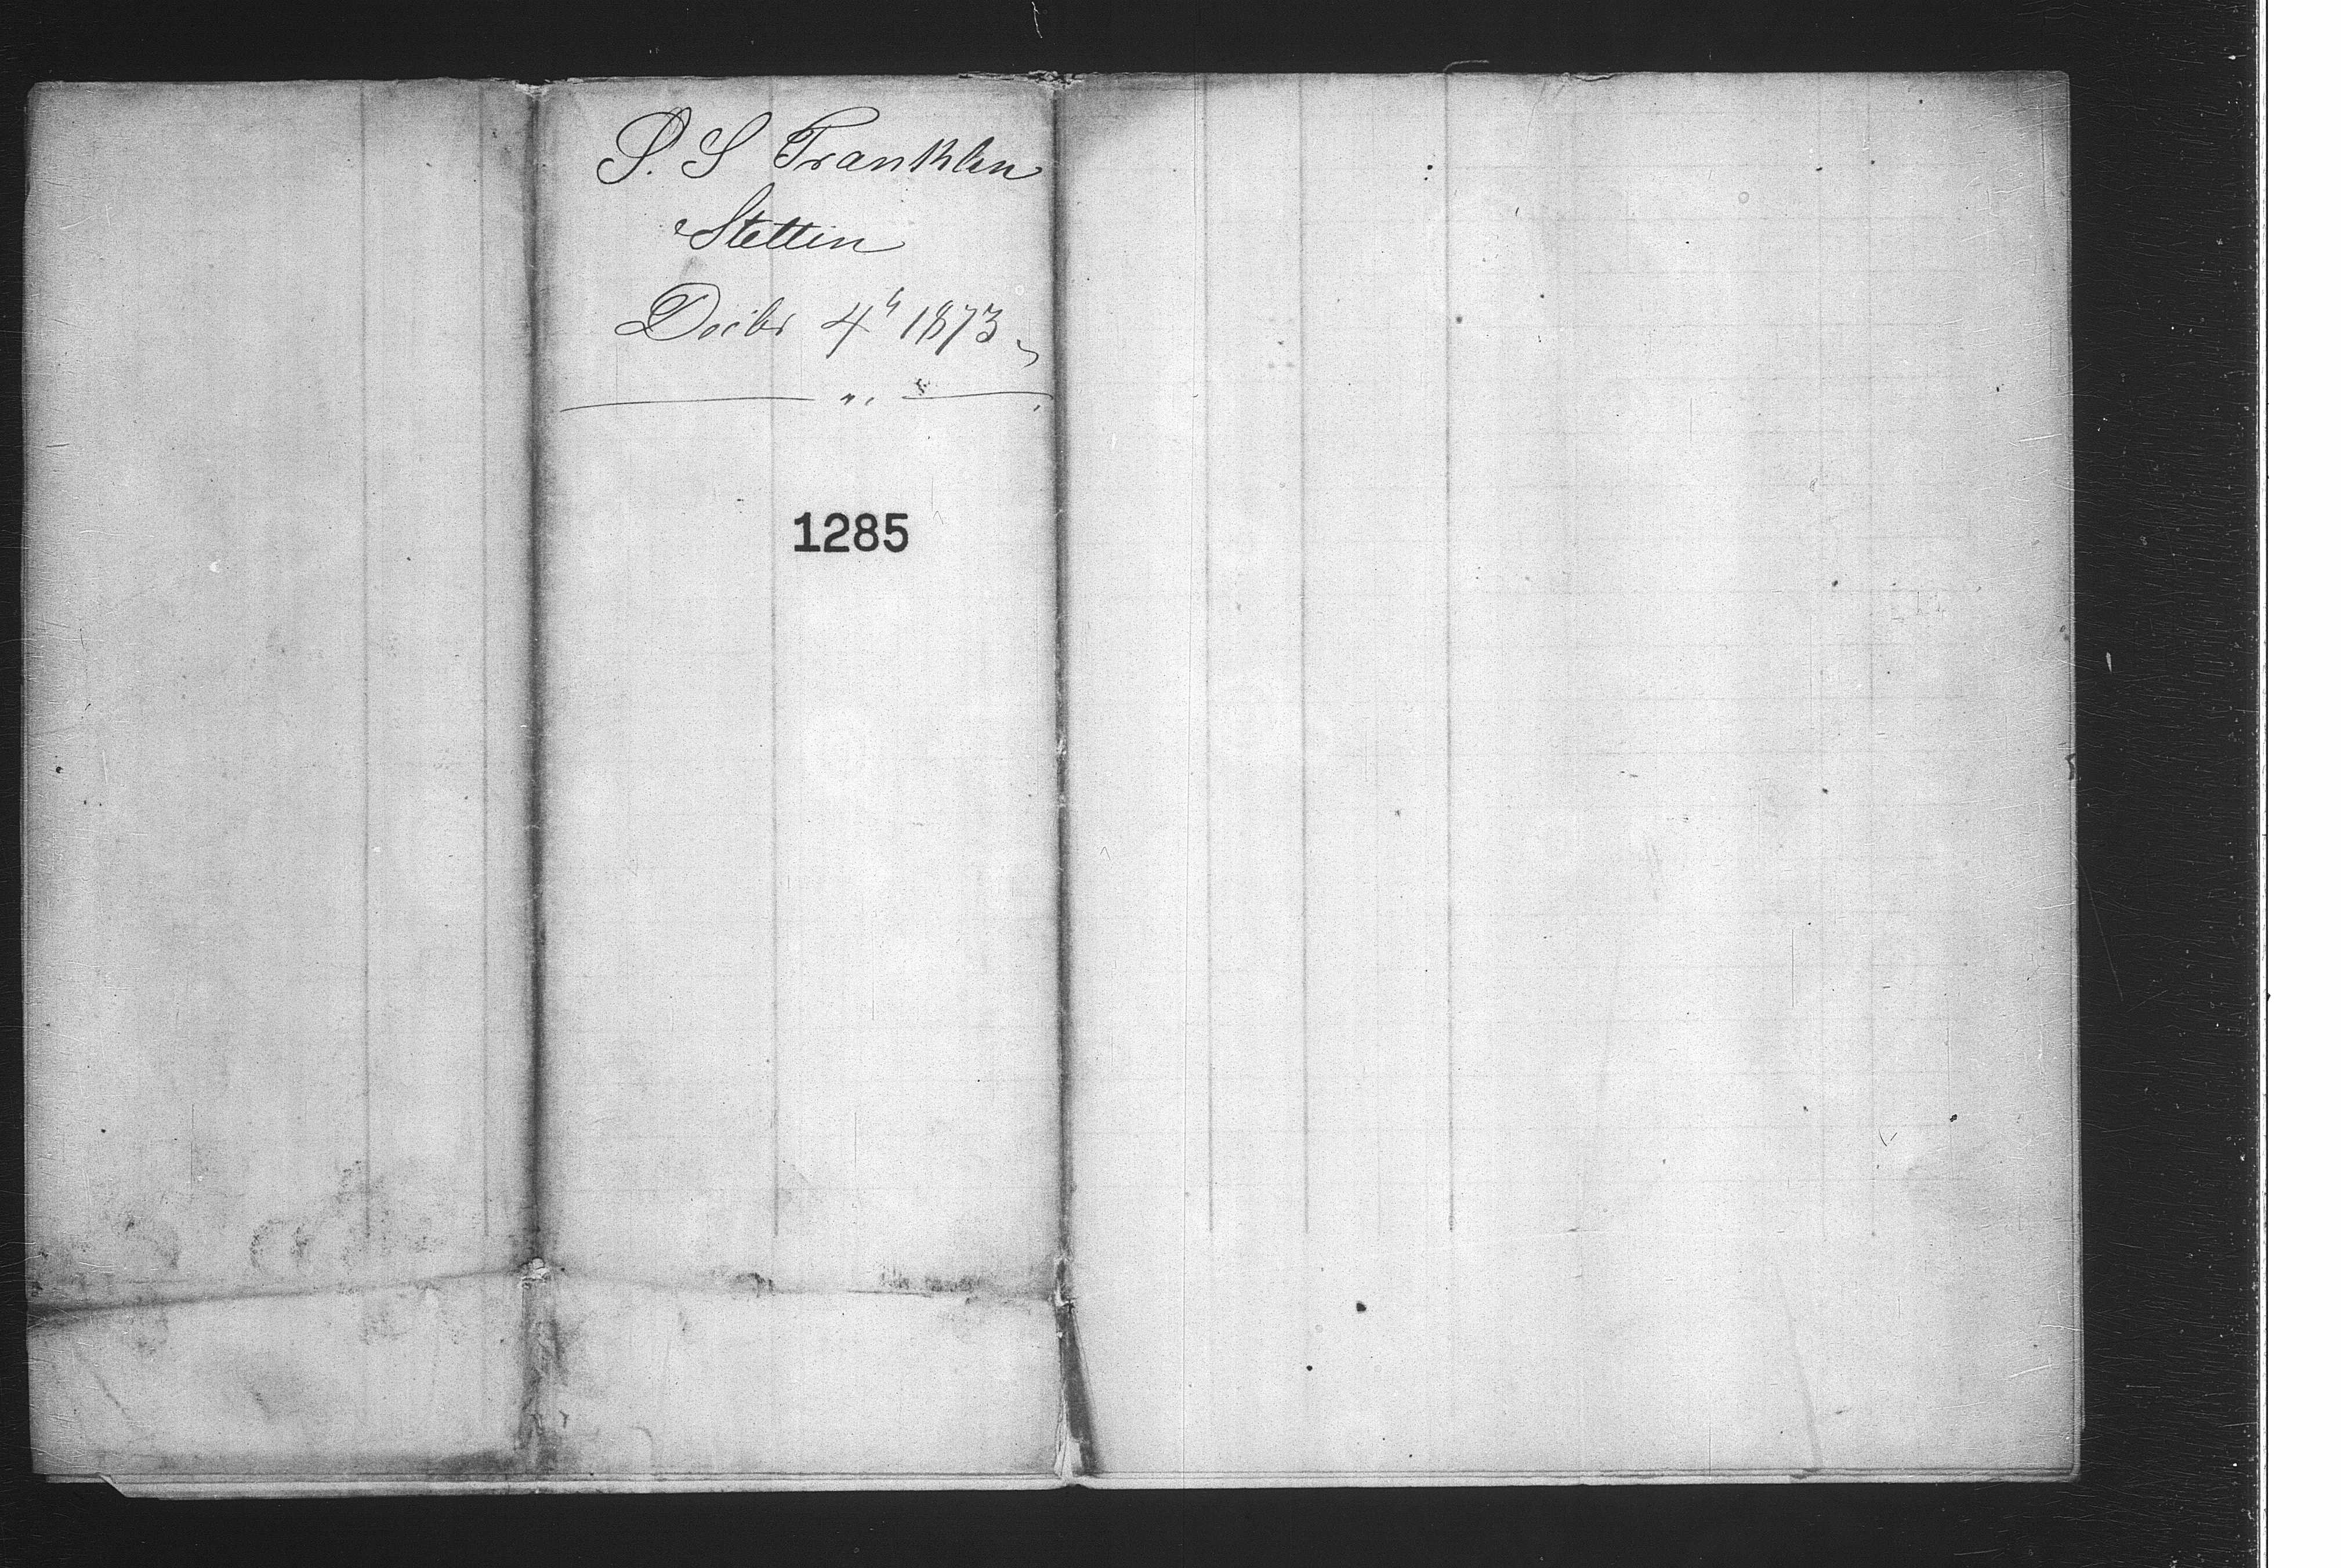 S. S Franklin
Stettin
Decbr 4th 1873
1285